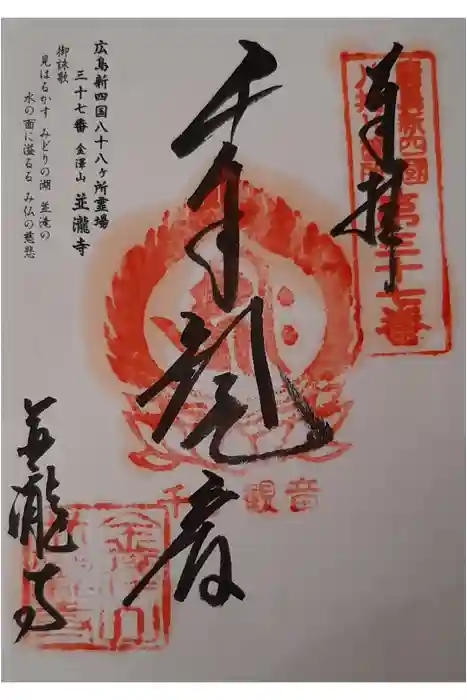 奉拝
新四國
第三十七番
千手観音
千 観音
広島新四国八十八ヶ所霊場
三十七番 金澤山 並瀧寺
御詠歌
見はるかす みどりの湖 並滝の
水の面に溢るる み仏の慈悲
並瀧寺